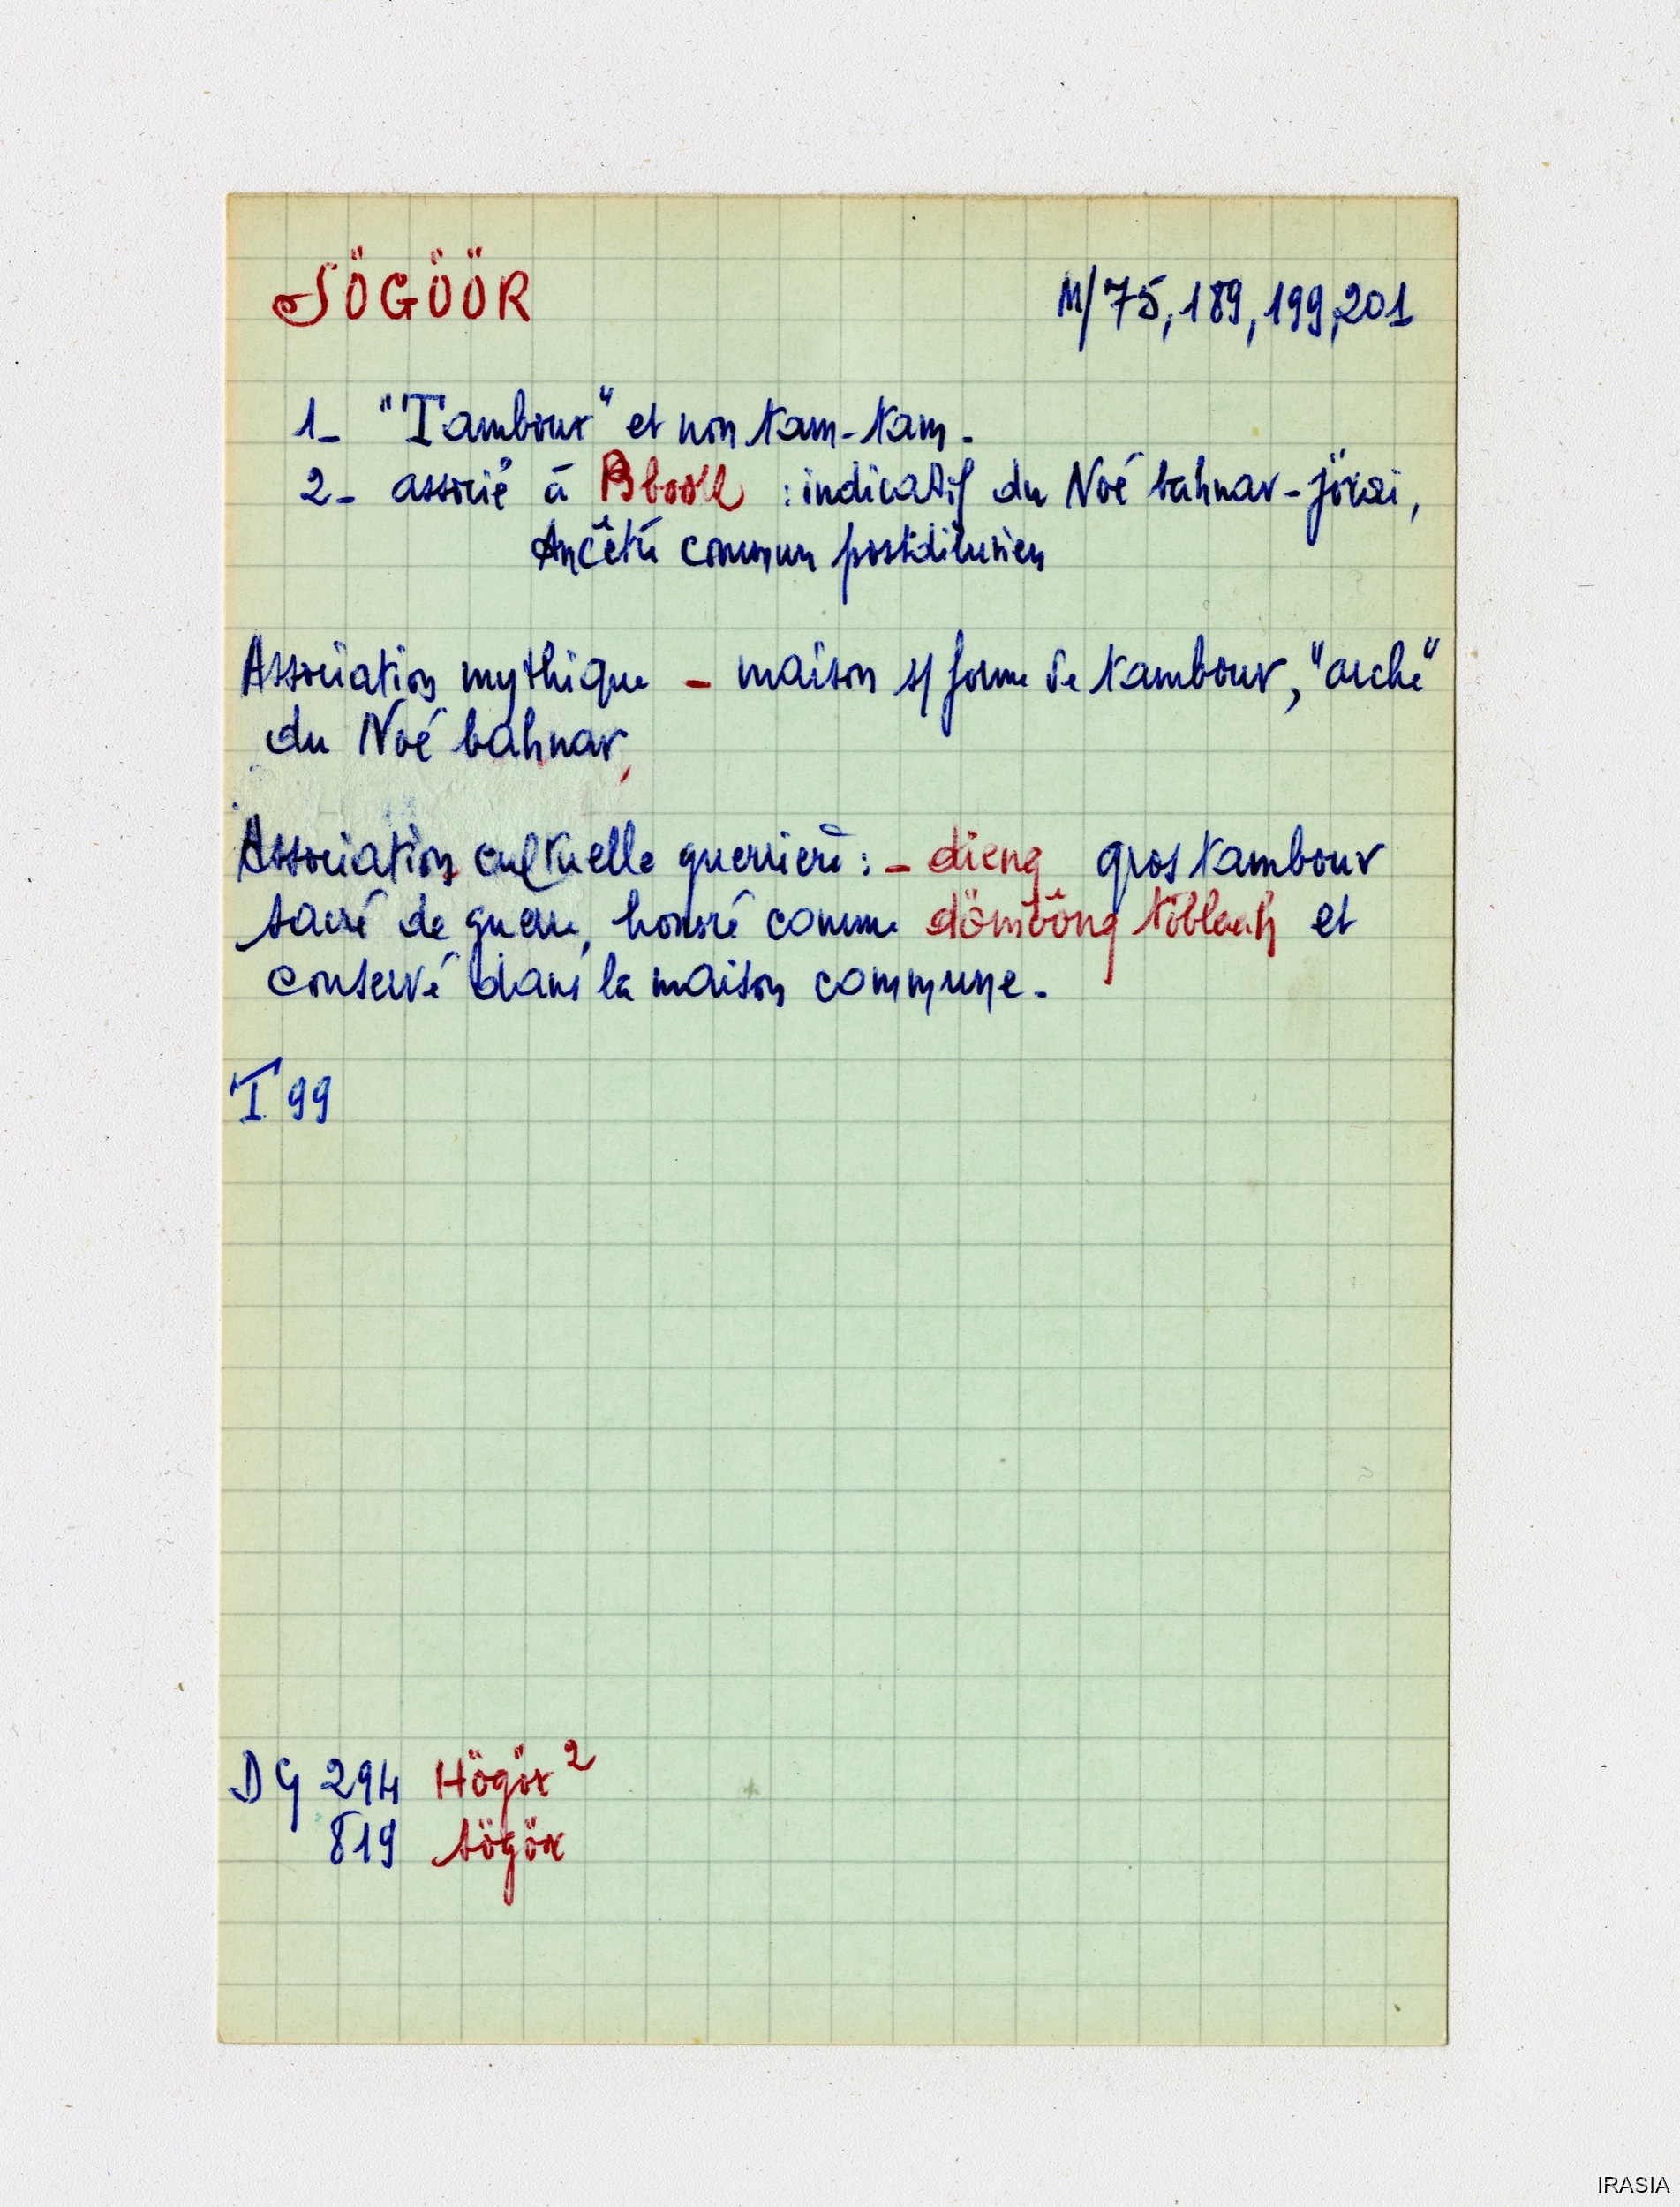 SÖGÖÖR M/75, 189, 199, 201
1_ "Tambour" et non tam-tam.
2_ associé à Bbook : indicatif du Noé bahnar-jörai,
Ancêtre commun postdiluvien
Association mythique - maison s/ forme de tambour, "arche"
du Noé bahnar,
Association cultuelle guerrière : - dieng gros tambour
sacré de guerre, honoré comme dömöông töblah et
conservé dans la maison commune.
T 99
DG 294 Högör 2
819 sögör
IRASIA